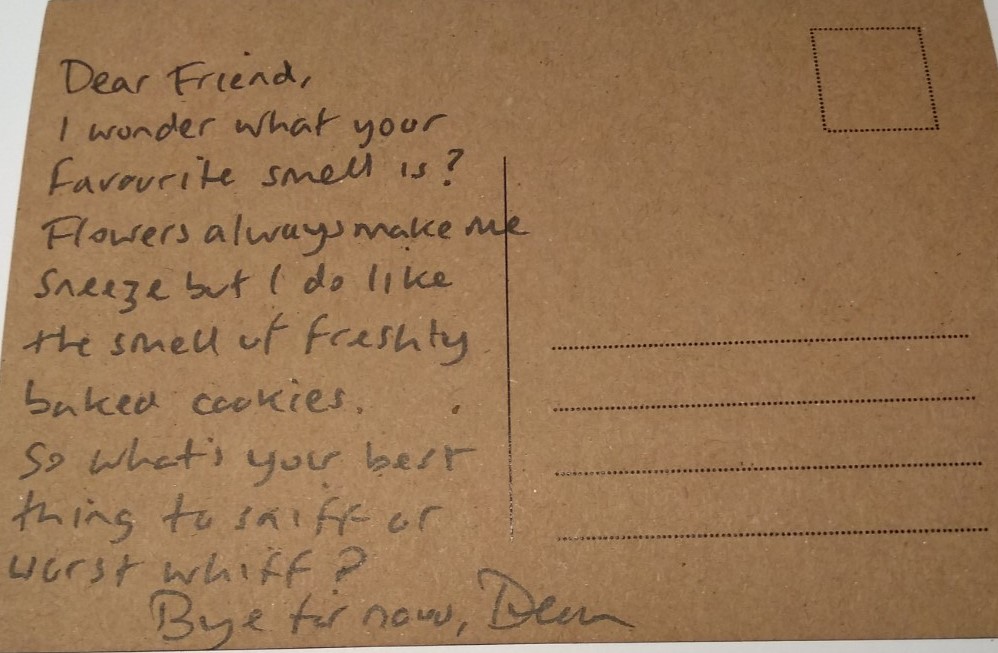 Dear Friend,
I wonder what your
favourite smell is?
Flowers always make me
sneeze but I do like
the smell of freshly
baked cookies.
So what's your best
thing to sniff or
worst whiff?
Bye for now, Dean